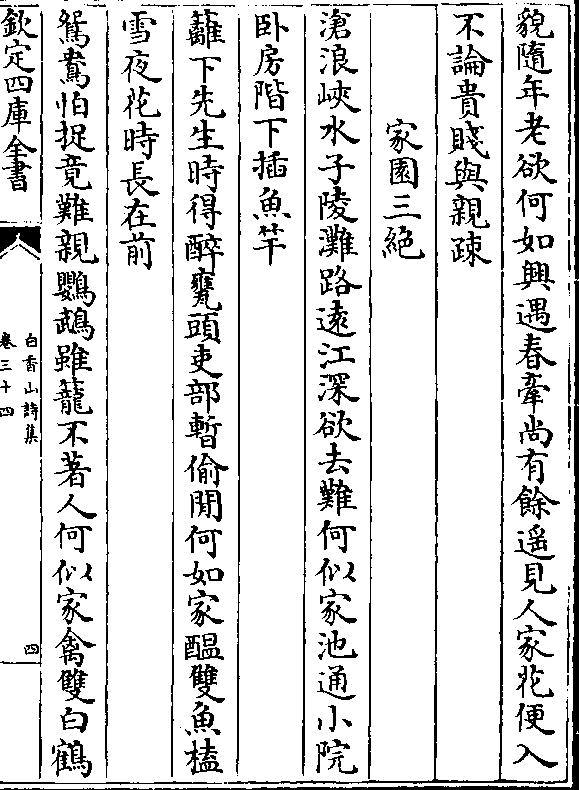 貌隨年老欲何如興遇春牽尚有餘遥見人家花便入
不論貴賤與親疎
家園三絶
滄浪峽水子陵灘路逺江深欲去難何似家池通小院
卧房階下插魚竿
籬下先生時得醉甕頭吏部暫偷閒何如家醖雙魚榼
雪夜花時長在前
鴛鴦怕捉竟難親鸚鵡雖籠不著人何似家禽雙白鶴
欽定四庫全書
白香山詩集
卷三十四
四